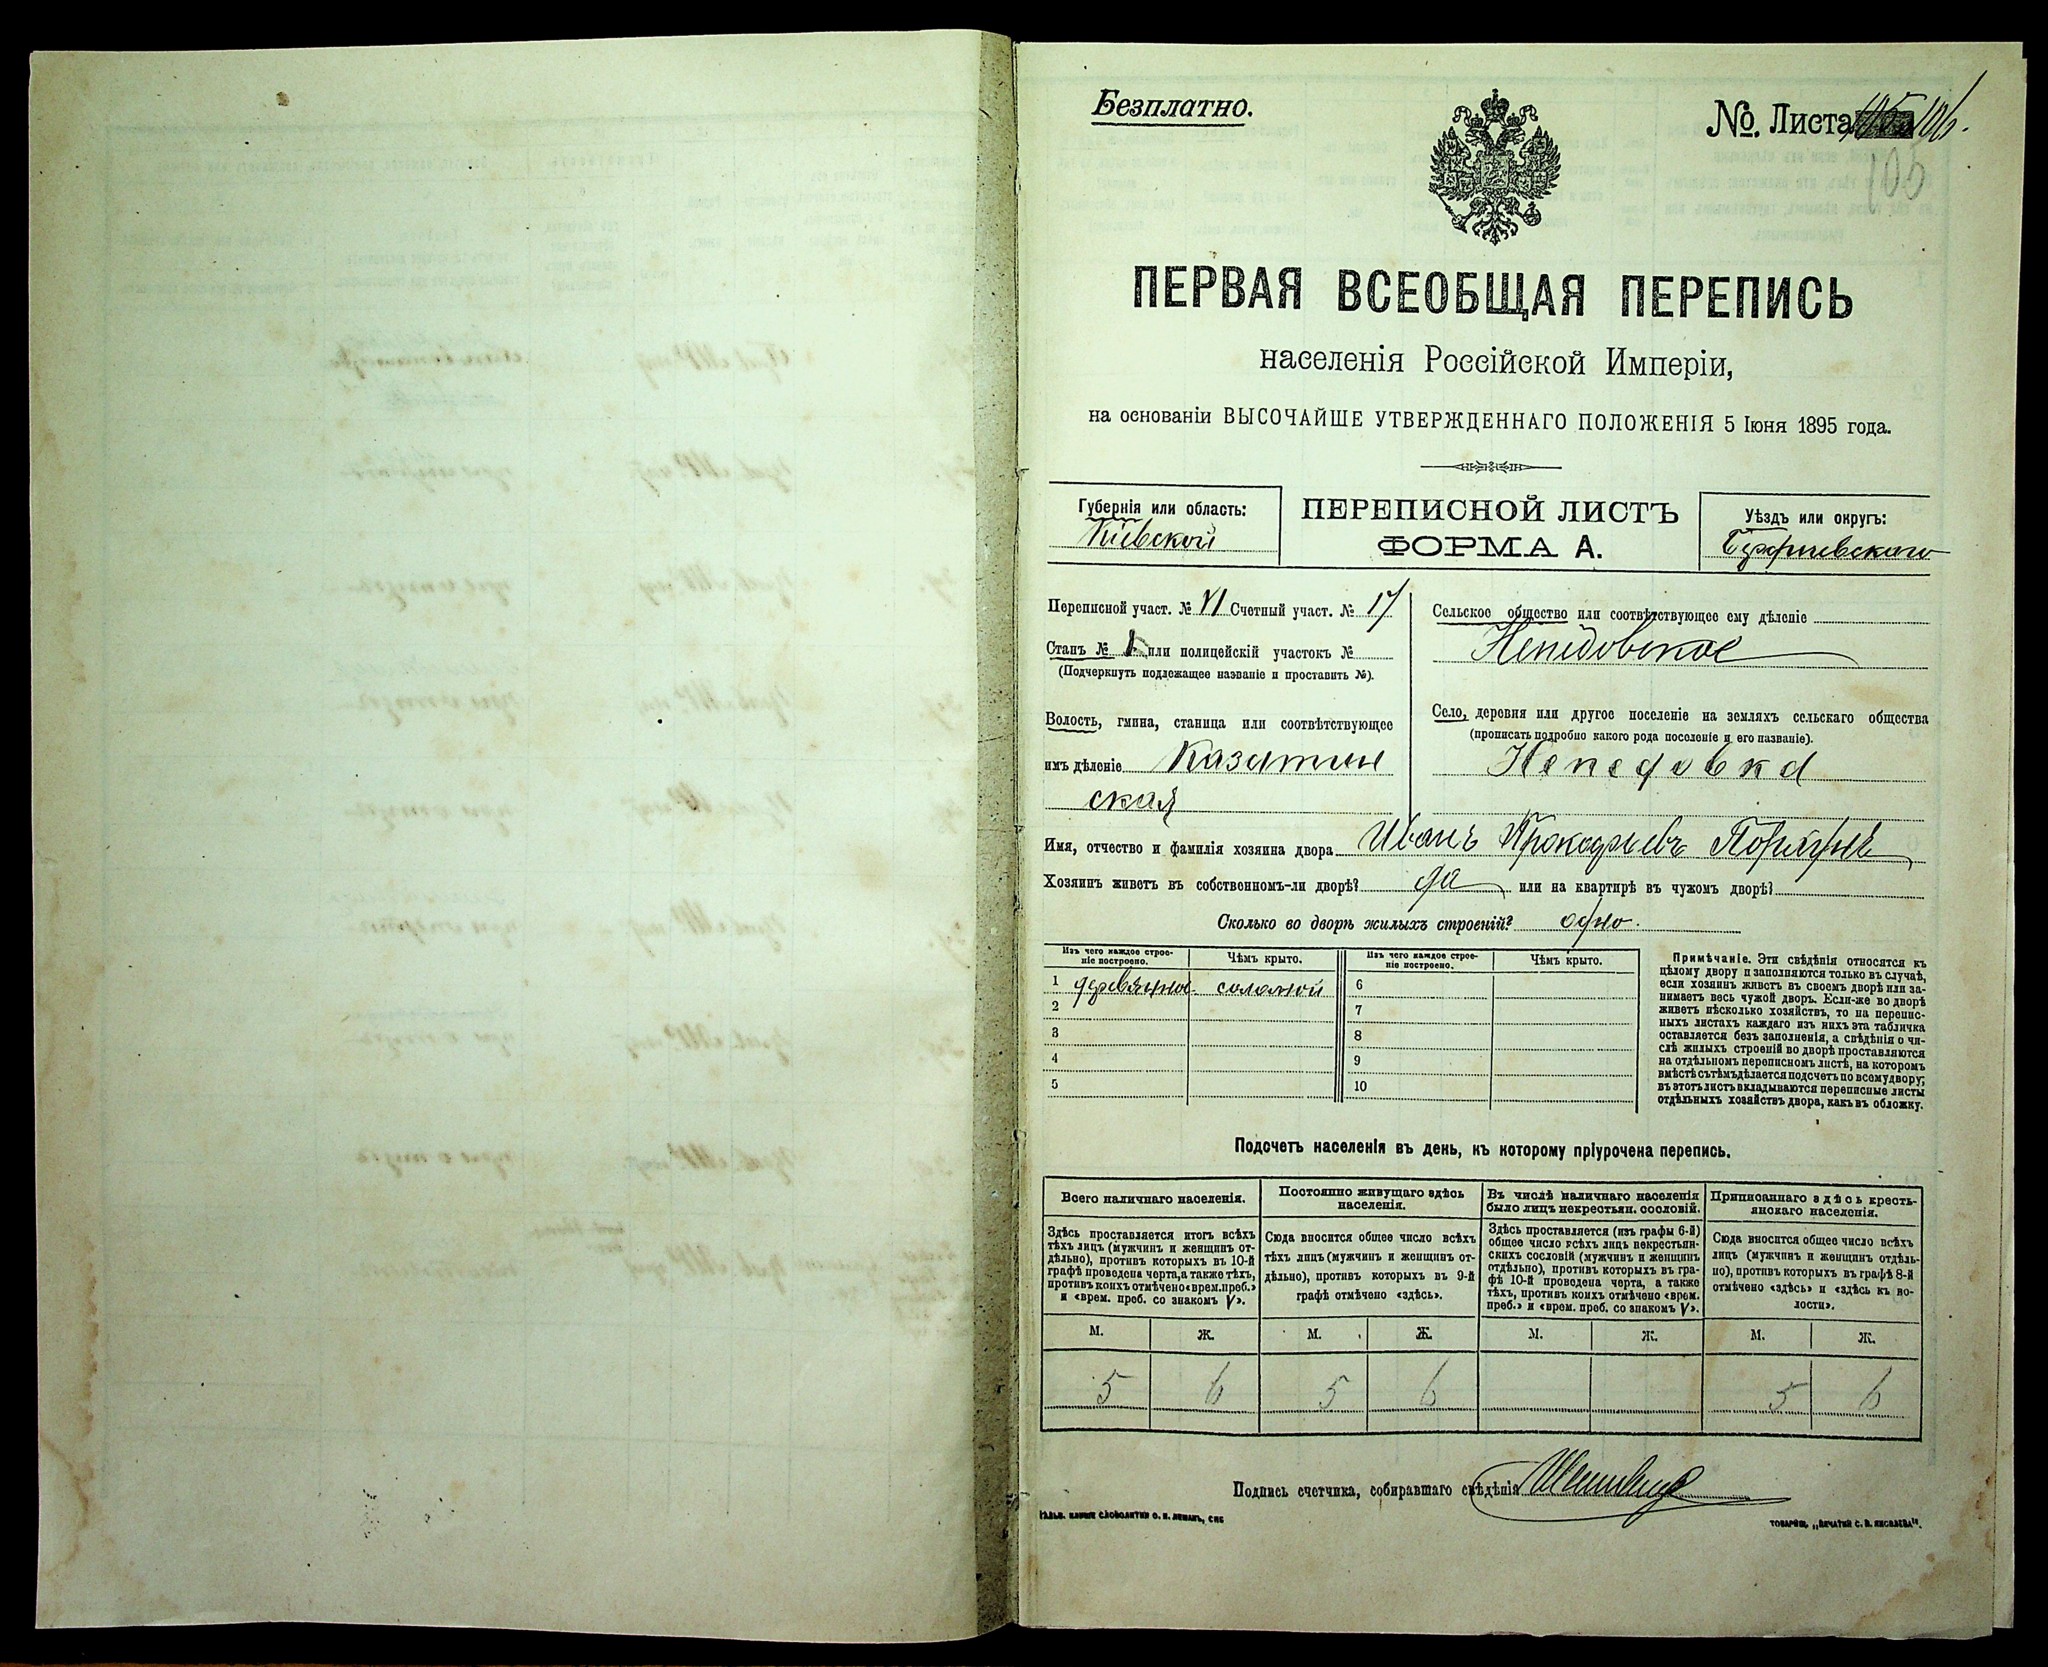 Безплатно.
№. Листа 106.
105
ПЕРВАЯ ВСЕОБЩАЯ ПЕРЕПИСЬ
населенія Россійской Имперіи,
на основаніи ВЫСОЧАЙШЕ УТВЕРЖДЕННАГО ПОЛОЖЕНІЯ 5 Іюня 1895 года.
Губернія или область:
Кіевской
ПЕРЕПИСНОЙ ЛИСТЪ
ФОРМА А.
Уѣздъ или округъ:
Бердичевскаго
Переписной участ. № VI Счетный участ. № 17
Станъ № 1 или полицейскій участокъ №
(Подчеркнуть подлежащее названіе и проставить №).
Волость, гмина, станица или соотвѣтствующее
имъ дѣленіе Казатин
ская
Сельское общество или соотвѣтствующее ему дѣленіе
Непедовское
Село, деревня или другое поселеніе на земляхъ сельскаго общества
(прописать подробно какого рода поселеніе и его названіе).
Непедовка
Имя, отчество и фамилія хозяина двора Иванъ Прокофьевъ
Хозяинъ живетъ въ собственномъ-ли дворѣ? да или на квартирѣ въ чужомъ дворѣ?
Сколько во дворѣ жилыхъ строеній? одно.
Изъ чего каждое строеніе построено. Чѣмъ крыто. Изъ чего каждое строеніе построено. Чѣмъ крыто.
1 деревянное соломой 6
2 7
3 8
4 9
5 10
Примѣчаніе. Эти свѣдѣнія относятся къ
цѣлому двору и заполняются только въ случаѣ,
если хозяинъ живетъ въ своемъ дворѣ или за-
нимаетъ весь чужой дворъ. Если-же во дворѣ
живетъ нѣсколько хозяйствъ, то на перепис-
ныхъ листахъ каждаго изъ нихъ эта табличка
оставляется безъ заполненія, а свѣдѣнія о чи-
слѣ жилыхъ строеній во дворѣ проставляются
на отдѣльномъ переписномъ листѣ, на которомъ
вмѣстѣ съ тѣмъ дѣлается подсчетъ по всему двору;
въ этотъ листъ вкладываются переписные листы
отдѣльныхъ хозяйствъ двора, какъ въ обложку.
Подсчетъ населенія въ день, къ которому пріурочена перепись.
Всего наличнаго населенія.
Здѣсь проставляется итогъ всѣхъ
тѣхъ лицъ (мужчинъ и женщинъ от-
дѣльно), противъ которыхъ въ 10-й
графѣ проведена черта, а также тѣхъ,
противъ коихъ отмѣчено «врем. преб.»
и «врем. преб. со знакомъ V».
Постоянно живущаго здѣсь
населенія.
Сюда вносится общее число всѣхъ
тѣхъ лицъ (мужчинъ и женщинъ от-
дѣльно), противъ которыхъ въ 9-й
графѣ отмѣчено «здѣсь».
Въ числѣ наличнаго населенія
было лицъ некрестьян. сословій.
Здѣсь проставляется (изъ графы 6-й)
общее число всѣхъ лицъ некрестьян-
скихъ сословій (мужчинъ и женщинъ
отдѣльно), противъ которыхъ въ гра-
фѣ 10-й проведена черта, а также
тѣхъ, противъ коихъ отмѣчено «врем.
преб.» и «врем. преб. со знакомъ V».
Приписаннаго здѣсь кресть-
янскаго населенія.
Сюда вносится общее число всѣхъ
лицъ (мужчинъ и женщинъ отдѣль-
но), противъ которыхъ въ графѣ 8-й
отмѣчено «здѣсь» и «здѣсь къ во-
лости».
М. Ж. М. Ж. М. Ж. М. Ж.
5 6 5 6 5 6
Подпись счетчика, собиравшаго свѣдѣнія
ТОВАРИЩ. „ПЕЧАТНИ С. П. ЯКОВЛЕВА“.